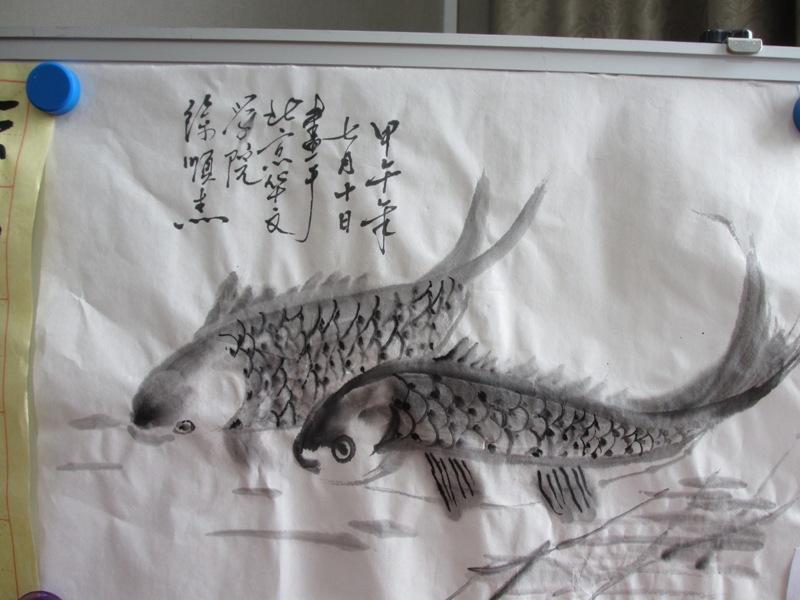 甲午年
七月十日
画于
北京华文
学院
徐顺杰